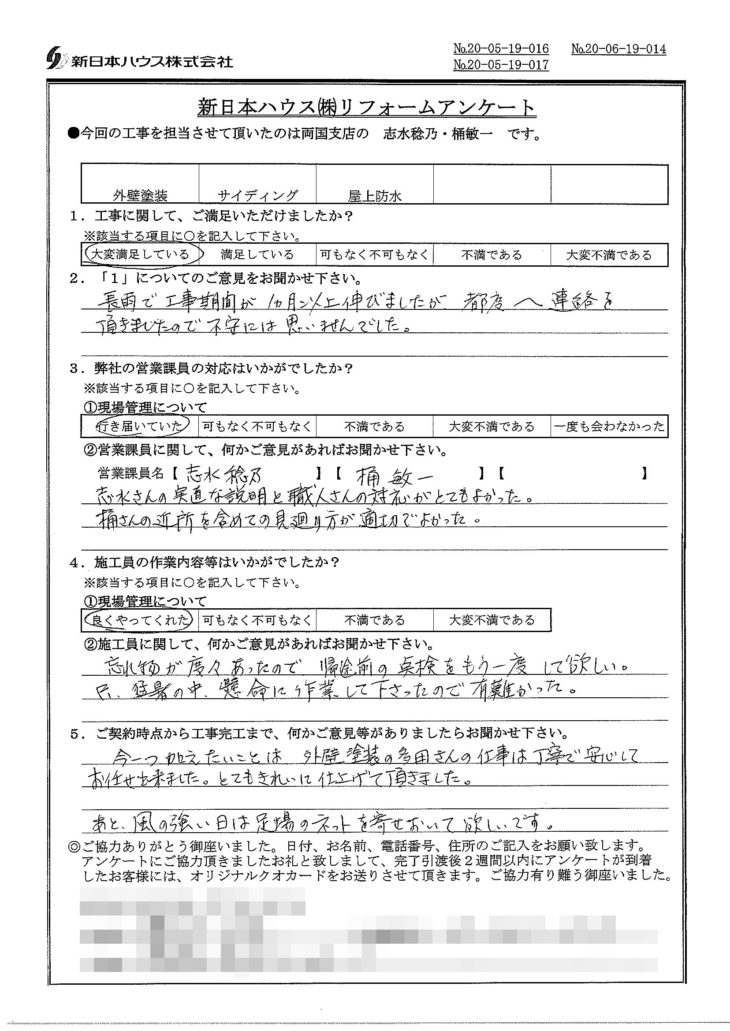 新日本ハウス株式会社
No.20-05-19-016 No.20-06-19-014
No.20-05-19-017
新日本ハウス㈱リフォームアンケート
●今回の工事を担当させて頂いたのは両国支店の 志水稔乃・桶敏一 です。
外壁塗装 サイディング 屋上防水
1．工事に関して、ご満足いただけましたか？
※該当する項目に○を記入して下さい。
大変満足している 満足している 可もなく不可もなく 不満である 大変不満である
2．「1」についてのご意見をお聞かせ下さい。
長雨で工事期間が1ヵ月以上伸びましたが、都度へ連絡を
頂きましたので不安には思いませんでした。
3．弊社の営業課員の対応はいかがでしたか？
※該当する項目に○を記入して下さい。
①現場管理について
行き届いていた 可もなく不可もなく 不満である 大変不満である 一度も会わなかった
②営業課員に関して、何かご意見があればお聞かせ下さい。
営業課員名【 志水稔乃 】【 桶敏一 】【 】
志水さんの実直な説明と職人さんの対応がとてもよかった。
桶さんの近所を含めての見廻り方が適切でよかった。
4．施工員の作業内容等はいかがでしたか？
※該当する項目に○を記入して下さい。
①現場管理について
良くやってくれた 可もなく不可もなく 不満である 大変不満である
②施工員に関して、何かご意見があればお聞かせ下さい。
忘れ物が度々あったので帰途前の点検をもう一度して欲しい。
只、猛暑の中、懸命に作業して下さったので有難かった。
5．ご契約時点から工事完工まで、何かご意見等がありましたらお聞かせ下さい。
今一つ加えたいことは 外壁塗装の多田さんの仕事は丁寧で安心して
お任せ出来ました。とてもきれいに仕上げて頂きました。
あと、風の強い日は足場のネットを寄せおいて欲しいです。
◎ご協力ありがとう御座いました。日付、お名前、電話番号、住所のご記入をお願い致します。
アンケートにご協力頂きましたお礼と致しまして、完了引渡後2週間以内にアンケートが到着
したお客様には、オリジナルクオカードをお送りさせて頂きます。ご協力有り難う御座いました。